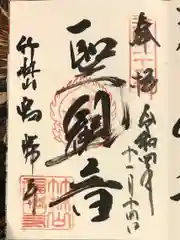 奉拝
令和四年
十一月十四日
聖観音
竹林山 福勝寺